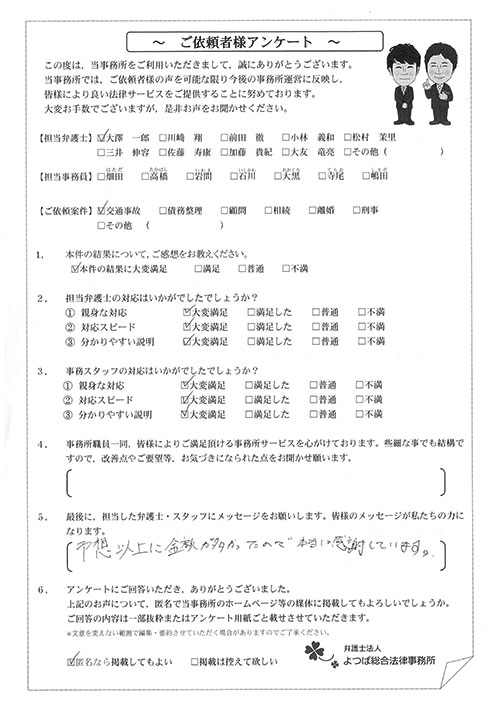 ～ ご依頼者様アンケート ～
この度は、当事務所をご利用いただきまして、誠にありがとうございます。
当事務所では、ご依頼者様の声を可能な限り今後の事務所運営に反映し、
皆様により良い法律サービスをご提供することに努めております。
大変お手数でございますが、是非お声をお聞かせください。
【担当弁護士】☑大澤 一郎 □川﨑 翔 □前田 徹 □小林 義和 □松村 茉里
□三井 伸容 □佐藤 寿康 □加藤 貴紀 □大友 竜亮 □その他（ ）
【担当事務員】□畑田 □高橋 □岩間 □石川 □大黒 □寺尾 □嶋田
【ご依頼案件】☑交通事故 □債務整理 □顧問 □相続 □離婚 □刑事
□その他 （ ）
1． 本件の結果について、ご感想をお教えください。
☑本件の結果に大変満足 □満足 □普通 □不満
2． 担当弁護士の対応はいかがでしたでしょうか？
① 親身な対応 ☑大変満足 □満足した □普通 □不満
② 対応スピード ☑大変満足 □満足した □普通 □不満
③ 分かりやすい説明 ☑大変満足 □満足した □普通 □不満
3． 事務スタッフの対応はいかがでしたでしょうか？
① 親身な対応 ☑大変満足 □満足した □普通 □不満
② 対応スピード ☑大変満足 □満足した □普通 □不満
③ 分かりやすい説明 ☑大変満足 □満足した □普通 □不満
4． 事務所職員一同、皆様によりご満足頂ける事務所サービスを心がけております。些細な事でも結構で
すので、改善点やご要望等、お気づきになられた点をお聞かせ願います。
5． 最後に、担当した弁護士・スタッフにメッセージをお願いします。皆様のメッセージが私たちの力に
なります。
予想以上に金額が多かったので本当に感謝しています。
6． アンケートにご回答いただき、ありがとうございました。
上記のお声について、匿名で当事務所のホームページ等の媒体に掲載してもよろしいでしょうか。
ご回答の内容は一部抜粋またはアンケート用紙ごと載せさせていただきます。
※文意を変えない範囲で編集・要約させていただく場合がありますのでご了承ください。
☑匿名なら掲載してもよい □掲載は控えて欲しい
弁護士法人
よつば総合法律事務所